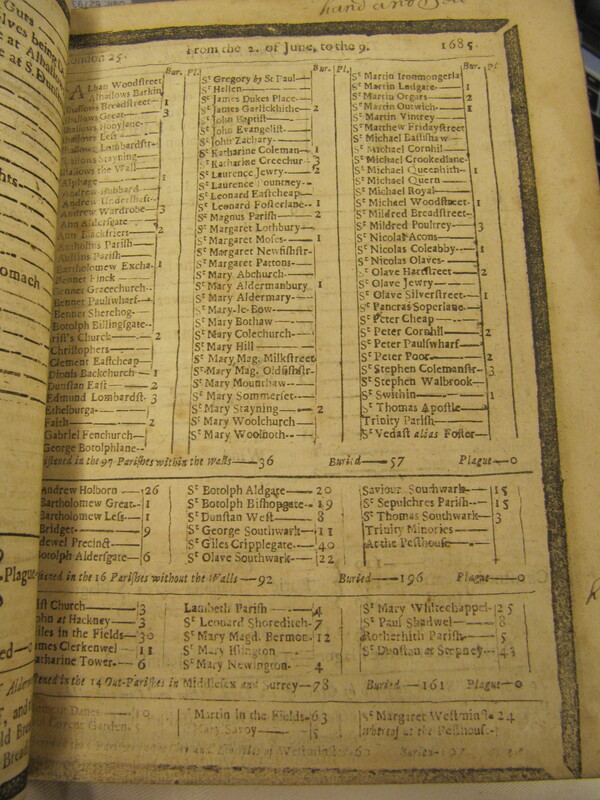 hand and
London 25. From the 2. of June, to the 9. 1685.
Bur. Pl.
Alban Woodstreet
Alhallows Barkin
Alhallows Breadstreet 1
Alhallows Great 3
Alhallows Honylane
Alhallows Less
Alhallows Lombardstr
Alhallows Stayning
Alhallows the Wall
Alphage 1
Andrew Hubbard
Andrew Undershaft
Andrew Wardrobe 3
Ann Aldersgate
Ann Blackfriers 2
Antholins Parish
Austins Parish
Bartholomew Excha. 1
Bennet Finck
Bennet Gracechurch
Bennet Paulswharf
Bennet Sherehog
Botolph Billingsgate
Christ's Church 2
Christophers
Clement Eastcheap
Dionis Backchurch 1
Dunstan East 2
Edmund Lombardst. 3
Ethelburga
Faith 2
Gabriel Fenchurch
George Botolphlane
Bur. Pl.
Sᵗ Gregory by Sᵗ Paul
Sᵗ Hellen
Sᵗ James Dukes Place
Sᵗ James Garlickhithe 2
Sᵗ John Baptist
Sᵗ John Evangelist
Sᵗ John Zachary
Sᵗ Katharine Coleman 1
Sᵗ Katharine Creechur 3
Sᵗ Laurence Jewry 2
Sᵗ Laurence Pountney
Sᵗ Leonard Eastcheap
Sᵗ Leonard Fosterlane 1
Sᵗ Magnus Parish 2
Sᵗ Margaret Lothbury
Sᵗ Margaret Moses 1
Sᵗ Margaret Newfishstr
Sᵗ Margaret Pattons
Sᵗ Mary Abchurch
Sᵗ Mary Aldermanbury 1
Sᵗ Mary Aldermary
Sᵗ Mary-le-Bow
Sᵗ Mary Bothaw
Sᵗ Mary Colechurch
Sᵗ Mary Hill
Sᵗ Mary Mag. Milkstreet
Sᵗ Mary Mag. Oldfishstr
Sᵗ Mary Mounthaw
Sᵗ Mary Sommerset
Sᵗ Mary Stayning 2
Sᵗ Mary Woolchurch
Sᵗ Mary Woolnoth
Bur. Pl.
Sᵗ Martin Ironmongerla
Sᵗ Martin Ludgate 1
Sᵗ Martin Orgars 2
Sᵗ Martin Outwich 1
Sᵗ Martin Vintrey
Sᵗ Matthew Fridaystreet
Sᵗ Michael Bassishaw
Sᵗ Michael Cornhil
Sᵗ Michael Crookedlane
Sᵗ Michael Queenhith 1
Sᵗ Michael Quern
Sᵗ Michael Royal
Sᵗ Michael Woodstreet 1
Sᵗ Mildred Breadstreet
Sᵗ Mildred Poultrey 3
Sᵗ Nicolas Acons
Sᵗ Nicolas Coleabby 1
Sᵗ Nicolas Olaves
Sᵗ Olave Hartstreet 2
Sᵗ Olave Jewry
Sᵗ Olave Silverstreet 1
Sᵗ Pancras Soperlane
Sᵗ Peter Cheap
Sᵗ Peter Cornhil 2
Sᵗ Peter Paulswharf
Sᵗ Peter Poor 2
Sᵗ Stephen Colemanstr 3
Sᵗ Stephen Walbrook
Sᵗ Swithin 1
Sᵗ Thomas Apostle
Trinity Parish
Sᵗ Vedast alias Foster
istened in the 97 Parishes within the Walls 36 Buried 57 Plague 0
Andrew Holborn 26
Bartholomew Great 1
Bartholomew Less 1
Bridget 9
idewel Precinct
Botolph Aldersgate 6
Sᵗ Botolph Aldgate 20
Sᵗ Botolph Bishopsgate 19
Sᵗ Dunstan West 8
Sᵗ George Southwark 11
Sᵗ Giles Cripplegate 40
Sᵗ Olave Southwark 22
Saviour Southwark 15
Sᵗ Sepulchres Parish 15
Sᵗ Thomas Southwark 3
Trinity Minories
At the Pesthouse
istened in the 16 Parishes without the Walls 92 Buried 196 Plague 0
ist Church 3
John at Hackney 3
Giles in the Fields 30
James Clerkenwel 11
Katharine Tower 6
Lambeth Parish 4
Sᵗ Leonard Shoreditch 7
Sᵗ Mary Magd. Bermon 12
Sᵗ Mary Islington
Sᵗ Mary Newington 4
Sᵗ Mary Whitechappel 25
Sᵗ Paul Shadwel 8
Rotherhith Parish 5
Sᵗ Dunstan at Stepney 43
istened in the 14 Out-Parishes in Middlesex and Surrey 78 Buried 161 Plague 0
Clement Danes 19
Covent Garden
Martin in the Fields 63
Mary Savoy 5
Sᵗ Margaret Westminst. 24
Whereof at the Pesthouse
Westminster 60 Buried